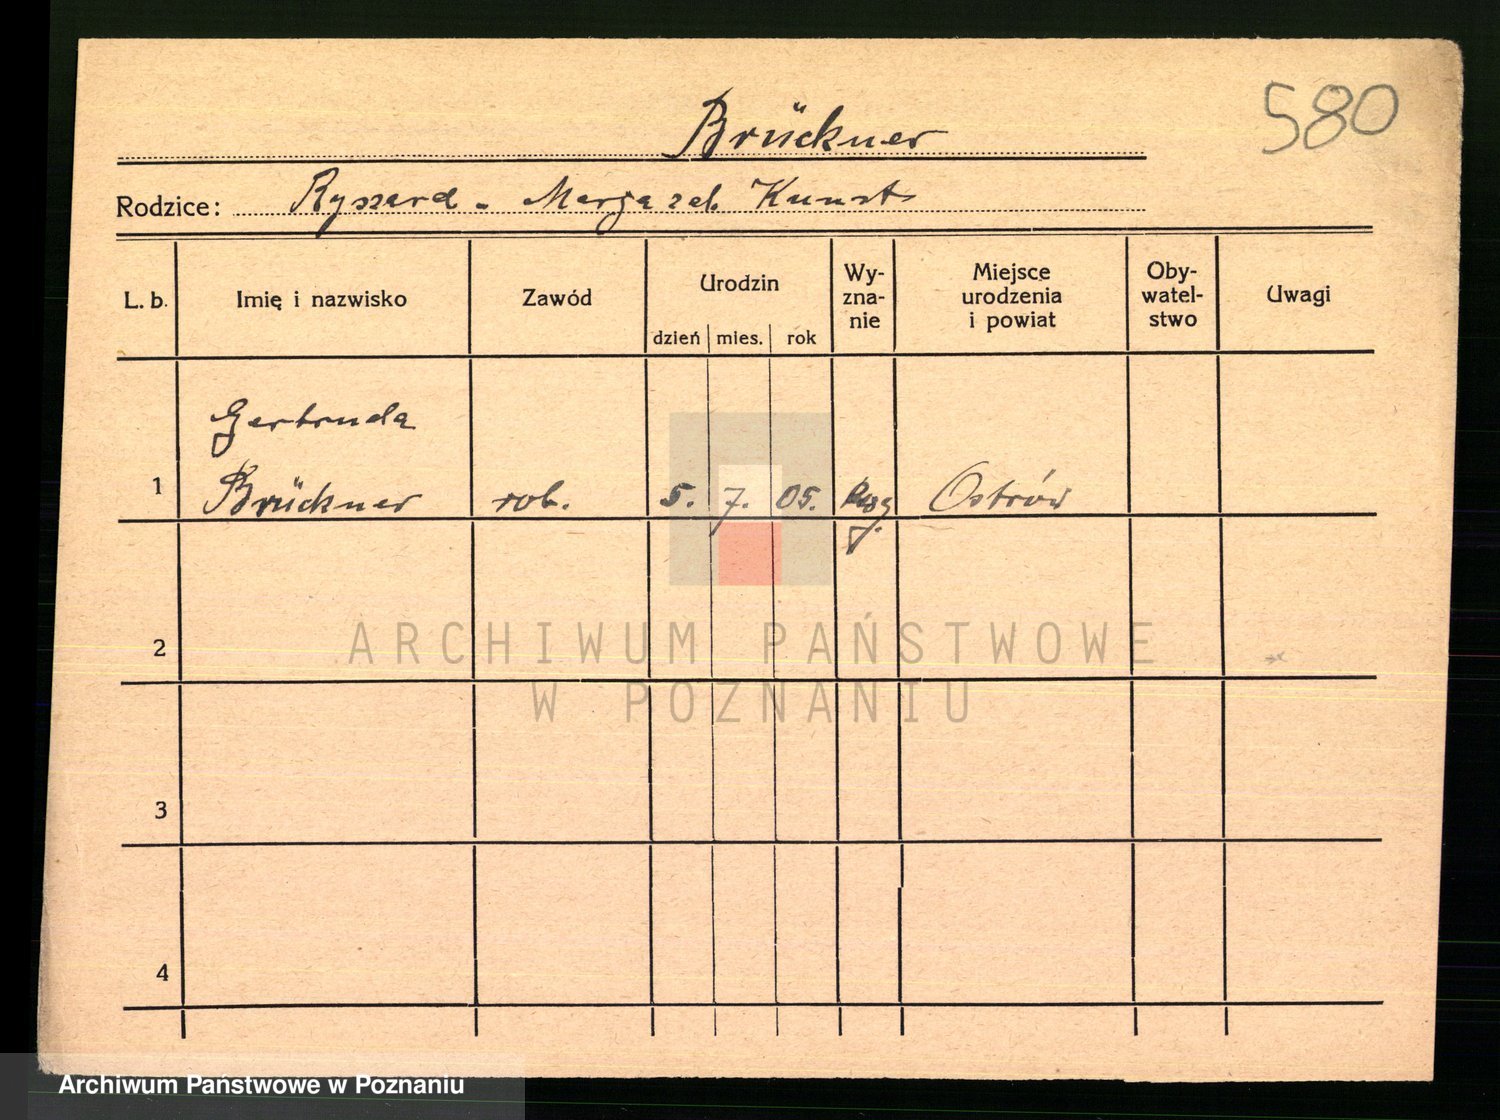 580
Brückner
Rodzice: Ryszard - Margareb. Kunst
L. b. Imię i nazwisko Zawód Urodzin dzień mies. rok Wy-zna-nie Miejsce urodzenia i powiat Oby-watel-stwo Uwagi
Gertruda
1 Brückner rob. 5. 7. 05. Ostrów
2
ARCHIWUM PAŃSTWOWE
W POZNANIU
3
4
Archiwum Państwowe w Poznaniu